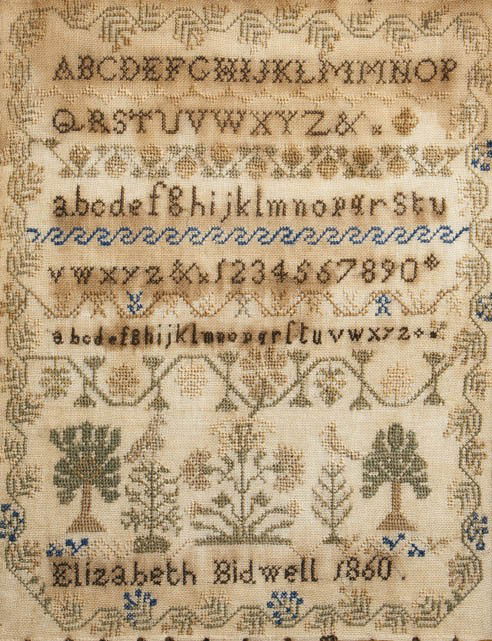 ABCDEFGHIJKLMNOP
QRSTUVWXYZ&.
abcdefghijklmnopqrstu
vwxyz&.1234567890
abcdefghijklmnopqrſtuvwxyz
Elizabeth Bidwell 1860.